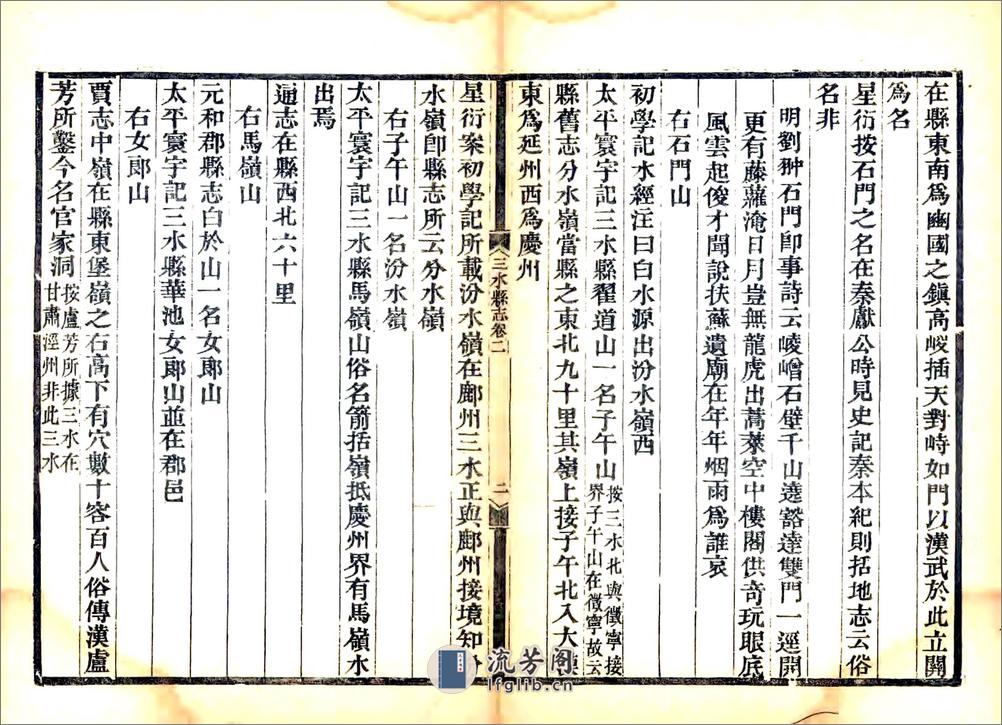 在縣東南爲豳國之鎮高峻插天對峙如門以漢武於此立關
爲名
星衍按石門之名在秦獻公時見史記秦本紀則括地志云俗
名非
明劉翀石門卽事詩云崚嶒石壁千山遶豁達雙門一逕開
更有藤蘿淹日月豈無龍虎出蒿萊空中樓閣供奇玩眼底
風雲起俊才聞說扶蘇遺廟在年年烟雨爲誰哀
右石門山
初學記水經注曰白水源出汾水嶺西
太平寰宇記三水縣翟道山一名子午山按三水北與徵寧接界子午山在徵寧故云
縣舊志分水嶺當縣之東北九十里其嶺上接子午北入大
東爲延州西爲慶州
三水縣志卷二
二
星衍案初學記所載汾水嶺在鄜州三水正與鄜州接境知分
水嶺卽縣志所云分水嶺
右子午山一名汾水嶺
太平寰宇記三水縣馬嶺山俗名箭括嶺抵慶州界有馬嶺水
出焉
通志在縣西北六十里
右馬嶺山
元和郡縣志白於山一名女郎山
太平寰宇記三水縣華池女郎山並在郡邑
右女郎山
賈志中嶺在縣東堡嶺之右高下有穴數十容百人俗傳漢盧
芳所鑿今名官家洞按盧芳所據三水在甘肅涇州非此三水
流芳阁
lfglib.cn